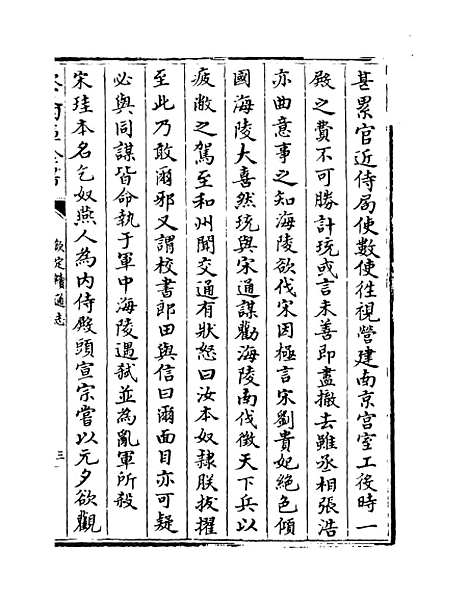 甚累官近侍局使數使徃視營建南京宫室工役時一
殿之費不可勝計珫或言未善即盡撤去雖丞相張浩
亦曲意事之知海陵欲伐宋因極言宋劉貴妃絶色傾
國海陵大喜然珫與宋通謀勸海陵南伐徵天下兵以
疲敝之駕至和州聞交通有狀怒曰汝本奴隸朕拔擢
至此乃敢爾邪又謂校書郎田與信曰爾面目亦可疑
必與同謀皆命執于軍中海陵遇弑並為亂軍所殺
宋珪本名乞奴燕人為内侍殿頭宣宗嘗以元夕欲觀
欽定續通志
三